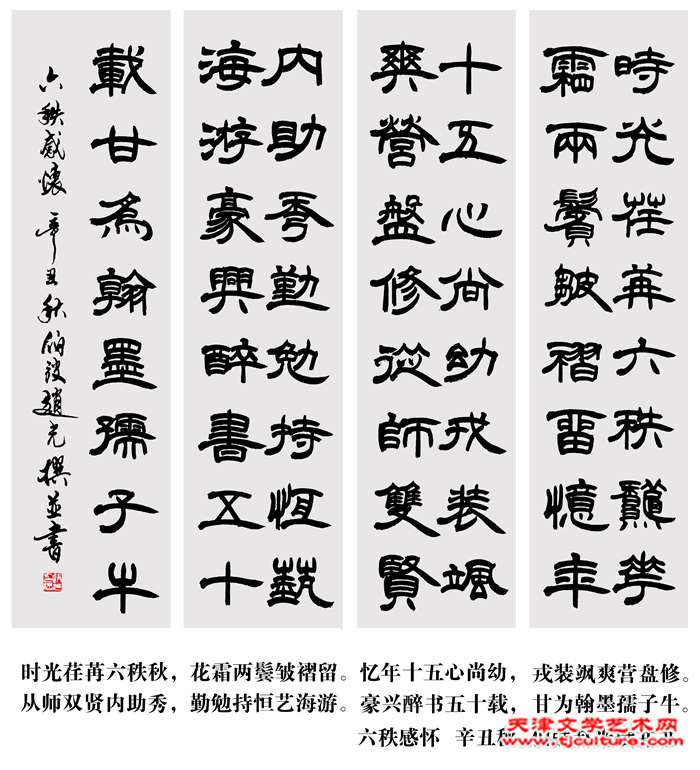 時光荏苒六秩龝花
霜兩鬢皺褶畱憶年
十五心尚幼戎装颯
爽營盤修從師雙賢
内助秀勤勉持恆藝
海游豪興醉書五十
載甘為翰墨孺子牛
六秩感懷 辛丑秋 趙光撰並書
时光荏苒六秩秋，花霜两鬓皱褶留。忆年十五心尚幼，戎装飒爽营盘修。
从师双贤内助秀，勤勉持恒艺海游。豪兴醉书五十载，甘为翰墨孺子牛。
六秩感怀 辛丑秋
天津文学艺术网
www.tjculture.com